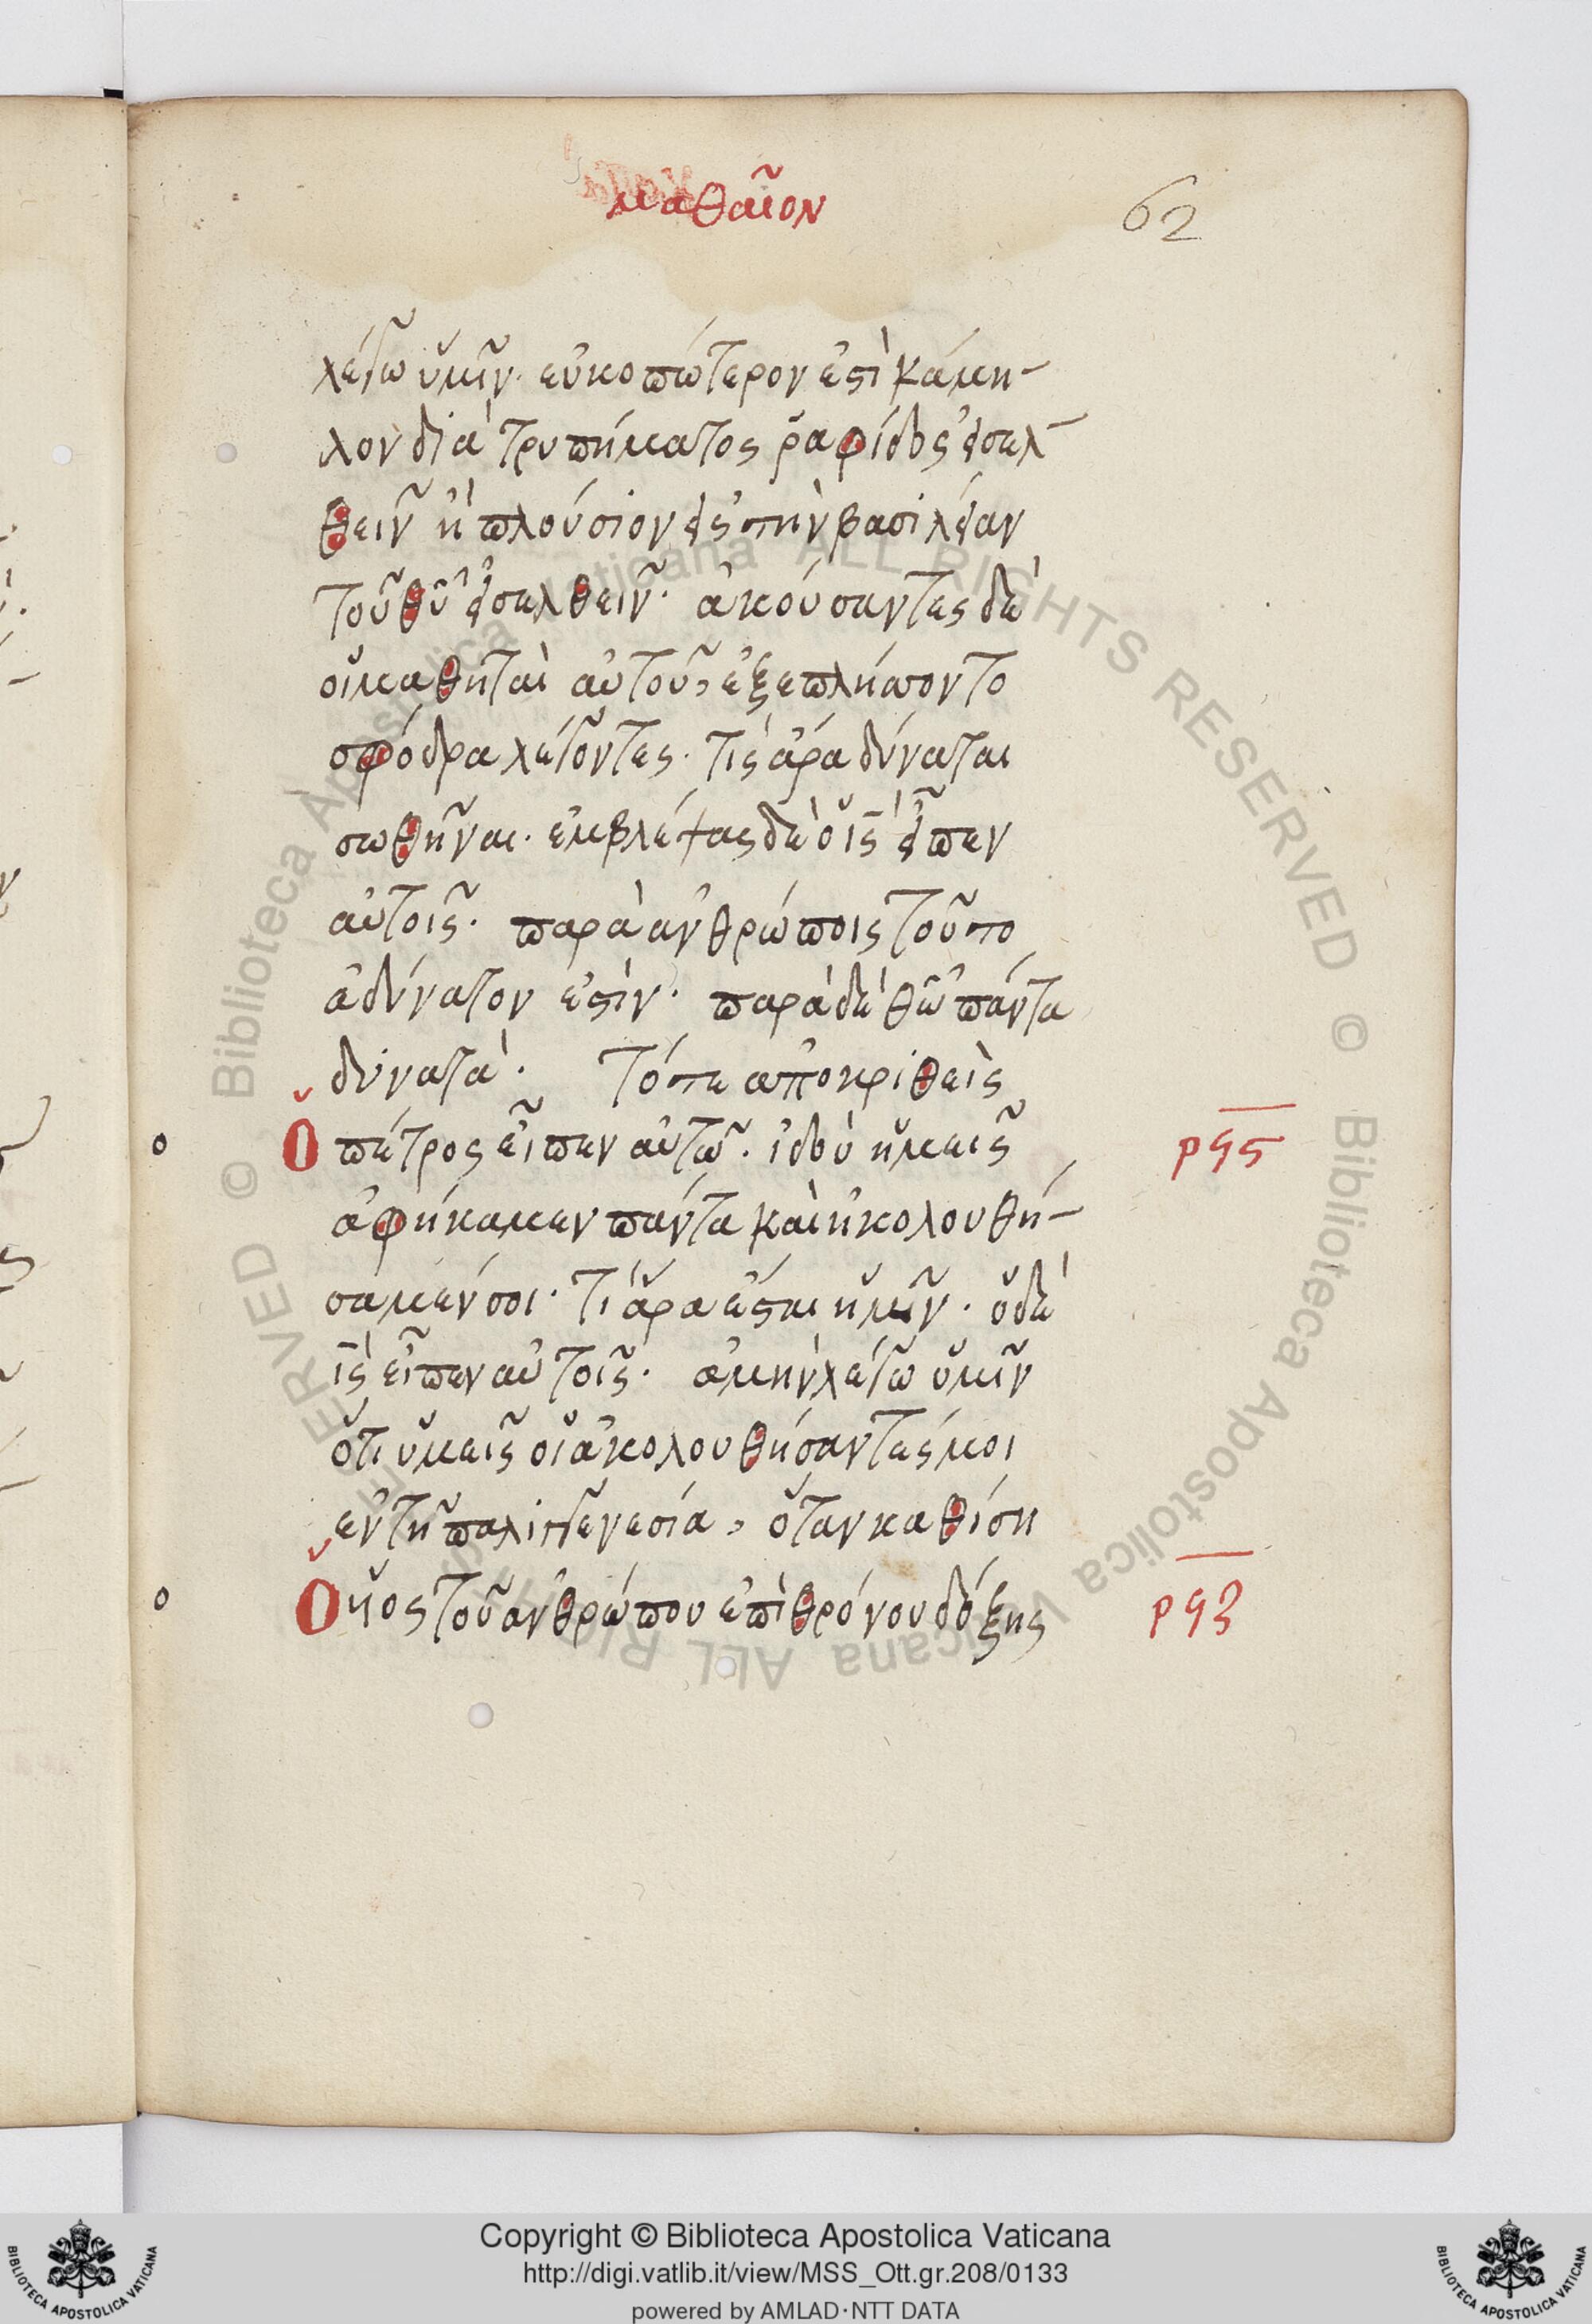 ματθαῖον
62
λέγω ὑμῖν· εὐκοπώτερον ἐστὶ κάμη-
λον διὰ τρυπήματος ῥαφίδος εἰσελ-
θεῖν ἢ πλούσιον εἰς τὴν βασιλείαν
τοῦ θυ εἰσελθεῖν· ἀκούσαντες δὲ
οἱ μαθηταὶ αὐτοῦ, ἐξεπλήττοντο
σφόδρα λέγοντες· τίς ἄρα δύναται
σωθῆναι· ἐμβλέψας δὲ ὁ ις εἶπεν
αὐτοῖς· παρὰ ἀνθρώποις τοῦτο
ἀδύνατον ἐστὶν· παρὰ δὲ θω πάντα
δυνατά· Τότε ἀποκριθεὶς
Ὁ πέτρος εἶπεν αὐτῶ· ἰδοὺ ἡμεῖς
ἀφήκαμεν πάντα καὶ ἠκολουθή-
σαμέν σοι· τί ἄρα ἔσται ἡμῖν· ὁ δὲ
ις εἶπεν αὐτοῖς· ἀμὴν λέγω ὑμῖν
ὅτι ὑμεῖς οἱ ἀκολουθήσαντές μοι
ἐν τῆ παλιγγενεσία, ὅταν καθίση
Ὁ υἱὸς τοῦ ἀνθρώπου ἐπὶ θρόνου δόξης
ρϟς
ρϟζ
© Biblioteca Apostolica Vaticana ALL RIGHTS RESERVED
Copyright © Biblioteca Apostolica Vaticana
http://digi.vatlib.it/view/MSS_Ott.gr.208/0133
powered by AMLAD·NTT DATA
BIBLIOTECA APOSTOLICA VATICANA
BIBLIOTECA APOSTOLICA VATICANA